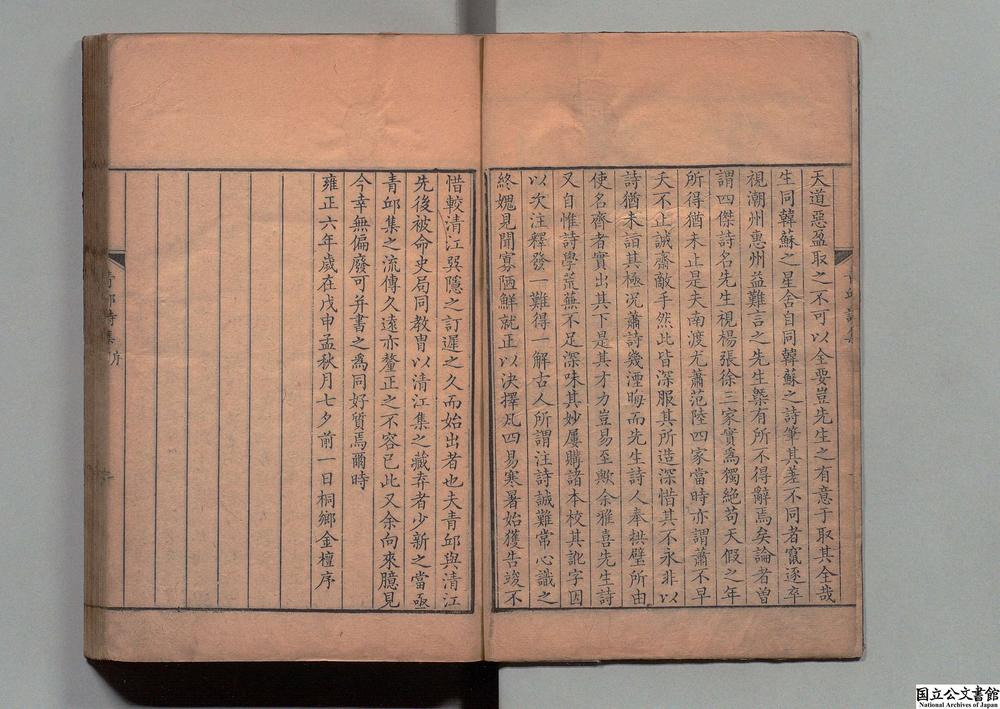 天道惡盈取之不可以全要豈先生之有意于取其全哉
生同韓蘇之星舍自同韓蘇之詩筆其差不同者竄逐卒
視潮州惠州益難言之先生槩有所不得辭焉矣論者曾
謂四傑詩名先生視楊張徐三家實爲獨絶苟天假之年
所得猶未止是夫南渡尤蕭范陸四家當時亦謂蕭不早
夭不止誠齋敵手然此皆深服其所造深惜其不永非以
詩猶未詣其極况蕭詩幾湮晦而先生詩人奉拱璧所由
使名齋者實出其下是其才力豈易至歟余雅喜先生詩
又自惟詩學荒蕪不足深味其妙屢購諸本校其訛字因
以次注釋發一難得一解古人所謂注詩誠難常心識之
終媿見聞寡陋鮮就正以决擇凡四易寒暑始獲告竣不
惜較清江巽隱之訂遲之久而始出者也夫青邱與清江
先後被命史局同教胄以清江集之藏弆者少新之當亟
青邱集之流傳久遠亦釐正之不容已此又余向來臆見
今幸無偏廢可并書之爲同好質焉爾時
雍正六年歲在戊申孟秋月七夕前一日桐鄉金檀序
青邱詩集 序
国立公文書館
National Archives of Japan